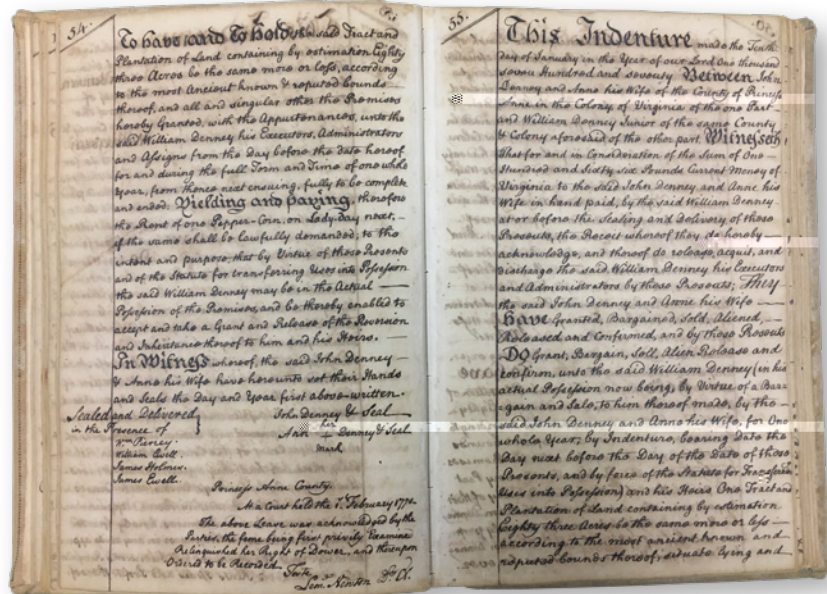 54.
To have and To hold the said Tract and
Plantation of Land containing by estimation Eighty
three Acres be the same more or less, according
to the most Ancient known & reputed Bounds
thereof, and all and singular other the Premises
hereby Granted, with the Appurtenances, unto the
said William Denney his Executors, Administrators
and Assigns from the Day before the Date hereof
for and during the full Term and Time of one whole
Year, from thence next ensuing, fully to be complete
and ended. Yielding and paying, therefore
the Rent of one Pepper-Corn, on Lady-Day next,
if the same shall be lawfully demanded; to the
intent and purpose, that by Virtue of these Presents
and of the Statute for transferring Uses into Possession
the said William Denney may be in the Actual
Possession of the Premises, and be thereby enabled to
accept and take a Grant and Release of the Reversion
and Inheritance thereof to him and his Heirs.
In Witness whereof, the said John Denney
& Anne his Wife have hereunto set their Hands
and Seals the Day and Year first above-written.
Sealed and Delivered
in the Presence of
John Denney & Seal
her
Ann + Denney & Seal
mark
William Ewell.
James Holmes.
James Ewell.
Princess Anne County.
At a Court held the 1st February 177
The above Lease was acknowledged by the
Parties, the feme being first privily Examined
Relinquished her Right of Dower, and thereupon
Ordered to be Recorded
Teste
Newton
55.
This Indenture made the Tenth
day of January in the Year of our Lord One thousand
seven Hundred and seventy Between John
Denney and Anne his Wife of the County of Princess
Anne in the Colony of Virginia of the one Part
and William Denney Junior of the same County
& Colony aforesaid of the other part. Witnesseth
that for and in Consideration of the Sum of One
Hundred and Sixty six Pounds Current Money of
Virginia to the said John Denney and Anne his
Wife in hand paid, by the said William Denney
at or before the Sealing and Delivery of these
Presents, the Receit whereof they do hereby
acknowledge, and thereof do release, acquit, and
discharge the said William Denney his Executors
and Administrators by these Presents; They
the said John Denney and Anne his Wife
Have Granted, Bargained, Sold, Aliened,
Released and Confirmed, and by these Presents
Do Grant, Bargain, Sell, Alien Release and
confirm, unto the said William Denney (in his
actual Possession now being, by Virtue of a Bar=
gain and Sale, to him thereof made, by the
said John Denney and Anne his Wife, for One
whole Year; by Indenture, bearing Date the
Day next before the Day of the Date of these
Presents, and by force of the Statute for Transferring
Uses into Possession) and his Heirs One Tract and
Plantation of Land containing by estimation
Eighty three Acres be the same more or less
according to the most ancient known and
reputed bounds thereof; situate lying and